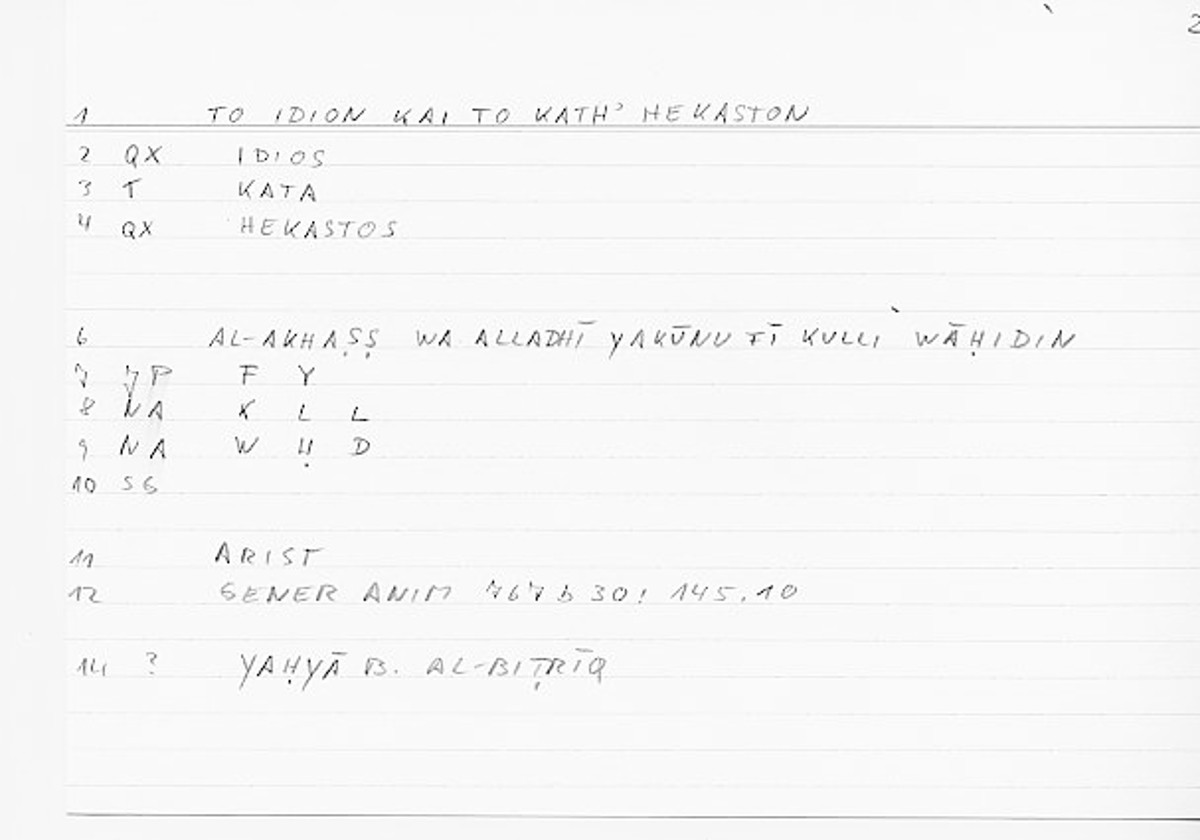 2
1 TO IDION KAI TO KATH' HEKASTON
2 QX IDIOS
3 T KATA
4 QX HEKASTOS
6 AL-AKHAṢṢ WA ALLADHĪ YAKŪNU FĪ KULLI WĀḤIDIN
7 7P F Y
8 NA K L L
9 NA W Ḥ D
10 SG
11 ARIST
12 GENER ANIM 767 b 30: 145.10
14 ? YAḤYĀ B. AL-BIṬRĪQ